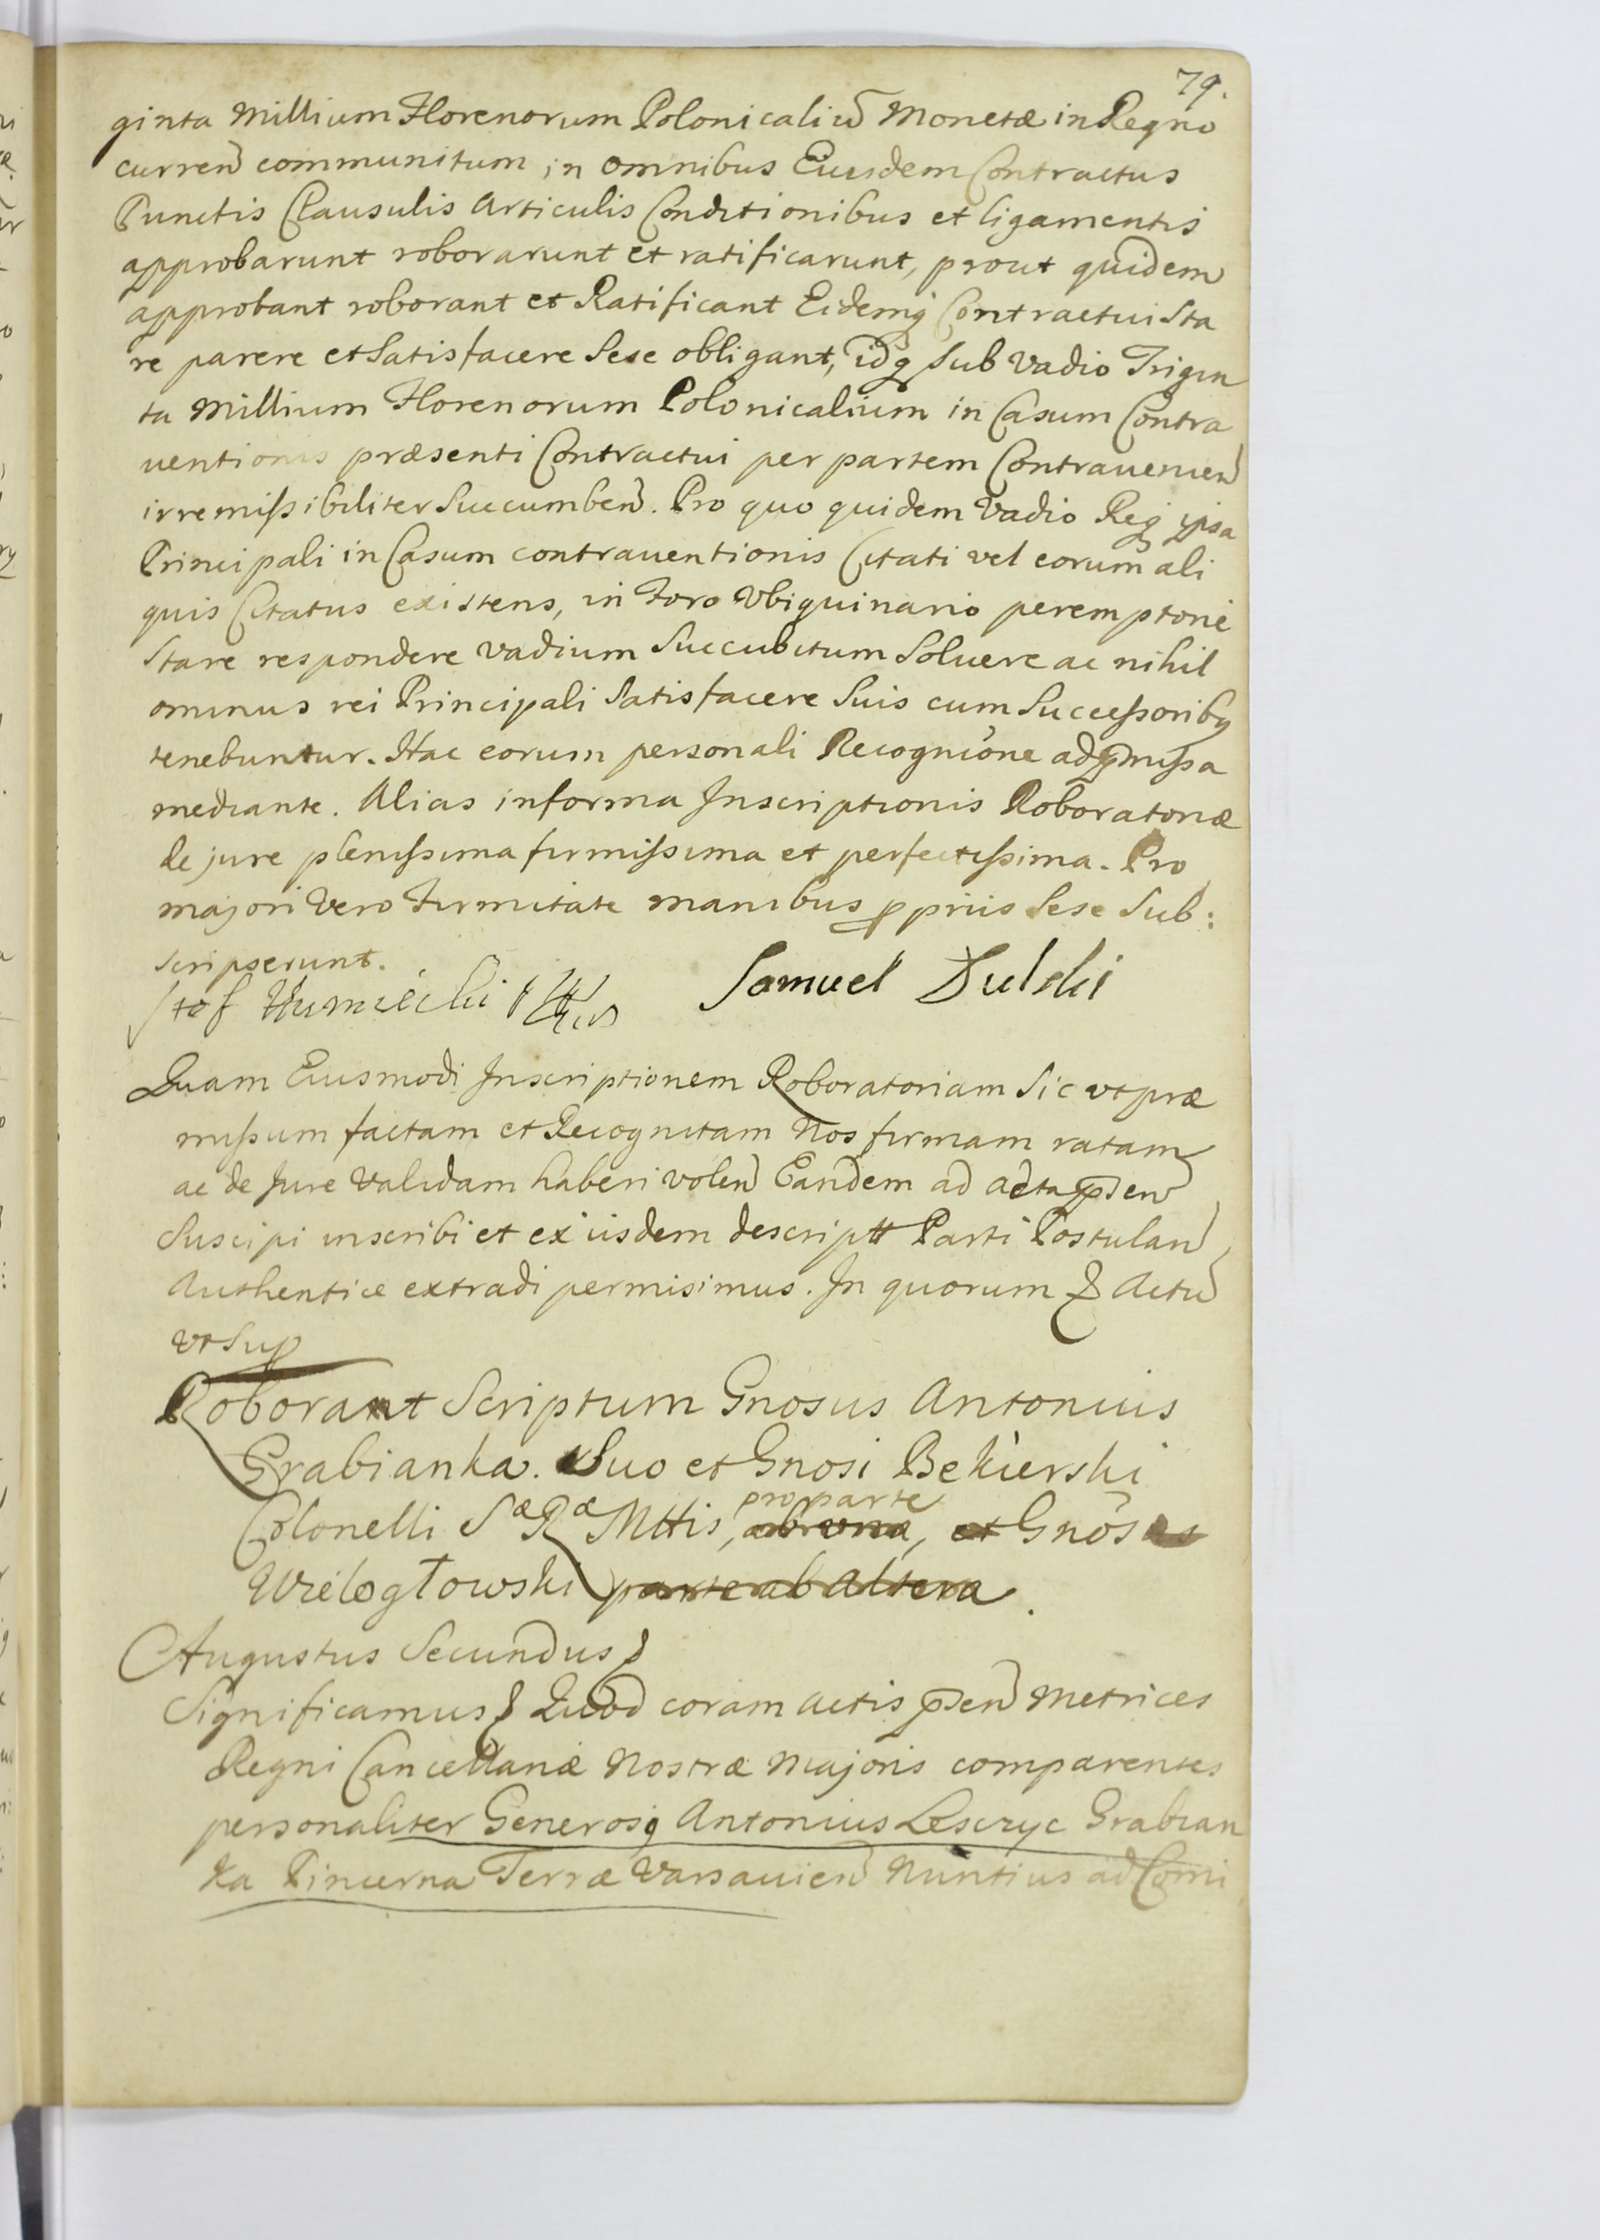 79.
ginta Millium Florenorum Polonicaliũ Monetæ in Regno
curreñ communitum in omnibus Eiusdem Contractus
Punctis Clausulis Articulis Conditionibus et ligamentis
approbarunt roborarunt et ratificarunt, prout quidem
approbant roborant et Ratificant Eidemq Contractui Sta
re parere et Satisfacere Sese obligant, idq Sub Vadio Trigin
ta Millium Florenorum Polonicalium in Casum Contra
uentionis præsenti Contractui per partem Contrauenieñ
irremissibiliter Succumbeñ. Pro quo quidem Vadio Reqj ipsa
Principali in Casum contrauentionis Citati vel eorum ali
quis Citatus existens, in Foro Vbiquinario peremptorie
Stare respondere Vadium Succubitum Soluere ac nihil
ominus rei Principali Satisfacere Suis cum Successoribq
tenebuntur. Hac eorum personali Recognic̃one ad p̃missa
mediante. Alias in forma Inscriptionis Roboratoriæ
de jure plenissima firmissima et perfectissima. Pro
majori Vero Firmitate manibus ppriis Sese Sub:
scripserunt.
Stef Humiecki Samuel Dulski
Quam Eiusmodi Inscriptionem Roboratoriam Sic vt præ
missum factam et Recognitam Nos firmam ratam
ac de Jure Validam haberi voleñ Eandem ad acta p̃señ
Suscipi inscribi et ex iisdem descriptt Parti Postulañ
Authentice extradi permisimus. In quorum & Actũ
vt Sup
Roborant Scriptum Gnosus Antonius
Grabianka. Suo et Gnosi Bekierski
pro parte
Colonelli Sæ Ræ Mttis, ab vna, et Gnõsus
Wielogłowski parte ab altera.
Augustus Secundus &
Significamus & Quod coram actis p̃señ Metrices
Regni Cancellariæ Nostræ Majoris comparentes
personaliter Generosq Antonius Lesczyc Grabian
ka Pincerna Terræ Varsauieñ Nuntius ad Comi